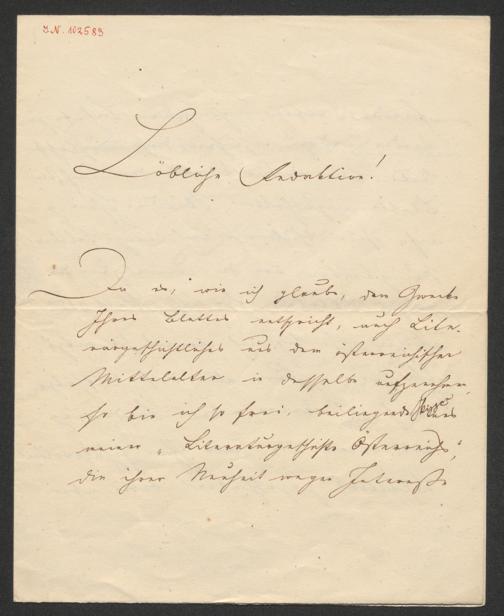 I.N. 102583
Löbliche Redaktion!
Da es, wie ich glaube, dem Zwecke
Ihres Blattes entspricht, auch Lite-
rärgeschichtliches aus dem österreichischen
Mittelalter in dasselbe aufzunehmen,
so bin ich so frei, beiliegende aus
meiner „Literaturgeschichte Österreichs",
die ihrer Neuheit wegen Interesse